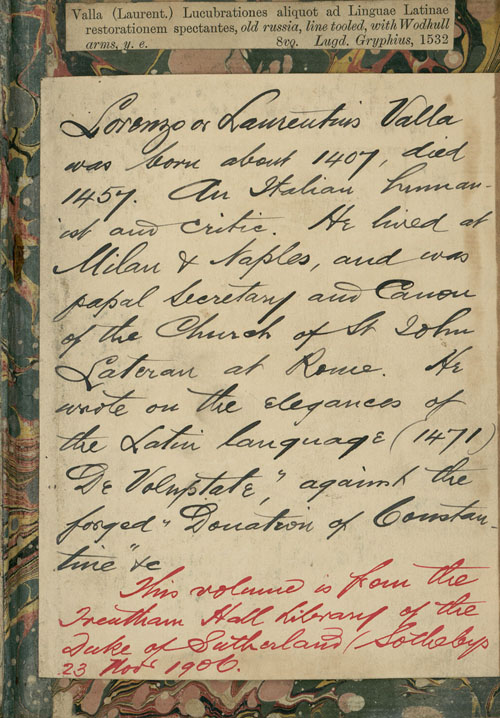 Valla (Laurent.) Lucubrationes aliquot ad Linguae Latinae
restorationem spectantes, old russia, line tooled, with Wodhull
arms, y. e. 8vo. Lugd. Gryphius, 1532
Lorenzo or Laurentius Valla
was born about 1407, died
1457. An Italian human-
ist and critic. He lived at
Milan & Naples, and was
papal secretary and Canon
of the Church of St John
Lateran at Rome. He
wrote on the elegances of
the Latin language (1471)
De Voluptate," against the
forged "Donation of Constan-
tine" &c
This volume is from the
Trentham Hall Library of the
Duke of Sutherland (Sothebys
23 Novr 1906.